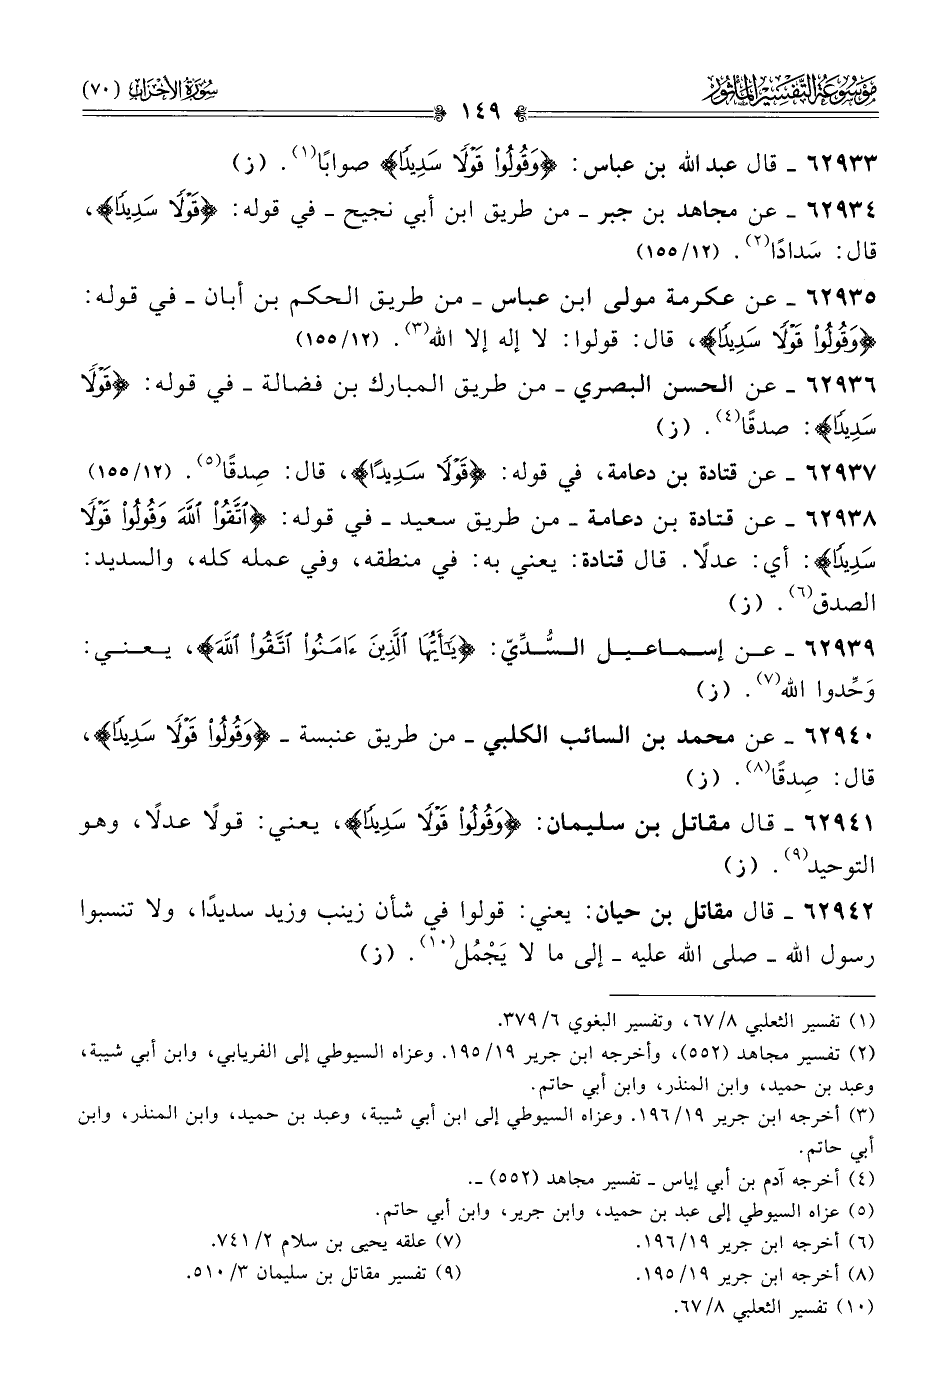 مَوْسُوعَة التَّفْسِيرِ المَأْثُورِ
سُورَةُ الأَحْزَابِ (٧٠)
١٤٩
٦٢٩٣٣ ـ قال عبد الله بن عباس: ﴿وَقُولُوا۟ قَوْلًا سَدِيدًا﴾ صوابًا(١). (ز)
٦٢٩٣٤ ـ عن مجاهد بن جبر ـ من طريق ابن أبي نجيح ـ في قوله: ﴿قَوْلًا سَدِيدًا﴾،
قال: سَدادًا(٢). (١٥٥/١٢)
٦٢٩٣٥ ـ عن عكرمة مولى ابن عباس ـ من طريق الحكم بن أبان ـ في قوله:
﴿وَقُولُوا۟ قَوْلًا سَدِيدًا﴾، قال: قولوا: لا إله إلا الله(٣). (١٥٥/١٢)
٦٢٩٣٦ ـ عن الحسن البصري ـ من طريق المبارك بن فضالة ـ في قوله: ﴿قَوْلًا
سَدِيدًا﴾: صدقًا(٤). (ز)
٦٢٩٣٧ ـ عن قتادة بن دعامة، في قوله: ﴿قَوْلًا سَدِيدًا﴾، قال: صِدقًا(٥). (١٥٥/١٢)
٦٢٩٣٨ ـ عن قتادة بن دعامة ـ من طريق سعيد ـ في قوله: ﴿ٱتَّقُوا۟ ٱللَّهَ وَقُولُوا۟ قَوْلًا
سَدِيدًا﴾: أي: عدلًا. قال قتادة: يعني به: في منطقه، وفي عمله كله، والسديد:
الصدق(٦). (ز)
٦٢٩٣٩ ـ عن إسماعيل السُّدِّيّ: ﴿يَـٰٓأَيُّهَا ٱلَّذِينَ ءَامَنُوا۟ ٱتَّقُوا۟ ٱللَّهَ﴾، يعني:
وَحِّدوا الله(٧). (ز)
٦٢٩٤٠ ـ عن محمد بن السائب الكلبي ـ من طريق عنبسة ـ ﴿وَقُولُوا۟ قَوْلًا سَدِيدًا﴾،
قال: صِدقًا(٨). (ز)
٦٢٩٤١ ـ قال مقاتل بن سليمان: ﴿وَقُولُوا۟ قَوْلًا سَدِيدًا﴾، يعني: قولًا عدلًا، وهو
التوحيد(٩). (ز)
٦٢٩٤٢ ـ قال مقاتل بن حيان: يعني: قولوا في شأن زينب وزيد سديدًا، ولا تنسبوا
رسول الله ـ صلى الله عليه ـ إلى ما لا يَجْمُل(١٠). (ز)
(١) تفسير الثعلبي ٨/ ٦٧، وتفسير البغوي ٦/ ٣٧٩.
(٢) تفسير مجاهد (٥٥٢)، وأخرجه ابن جرير ١٩/ ١٩٥. وعزاه السيوطي إلى الفريابي، وابن أبي شيبة،
وعبد بن حميد، وابن المنذر، وابن أبي حاتم.
(٣) أخرجه ابن جرير ١٩/ ١٩٦. وعزاه السيوطي إلى ابن أبي شيبة، وعبد بن حميد، وابن المنذر، وابن
أبي حاتم.
(٤) أخرجه آدم بن أبي إياس ـ تفسير مجاهد (٥٥٢) ـ.
(٥) عزاه السيوطي إلى عبد بن حميد، وابن جرير، وابن أبي حاتم.
(٦) أخرجه ابن جرير ١٩/ ١٩٦.
(٧) علقه يحيى بن سلام ٢/ ٧٤١.
(٨) أخرجه ابن جرير ١٩/ ١٩٥.
(٩) تفسير مقاتل بن سليمان ٣/ ٥١٠.
(١٠) تفسير الثعلبي ٨/ ٦٧.